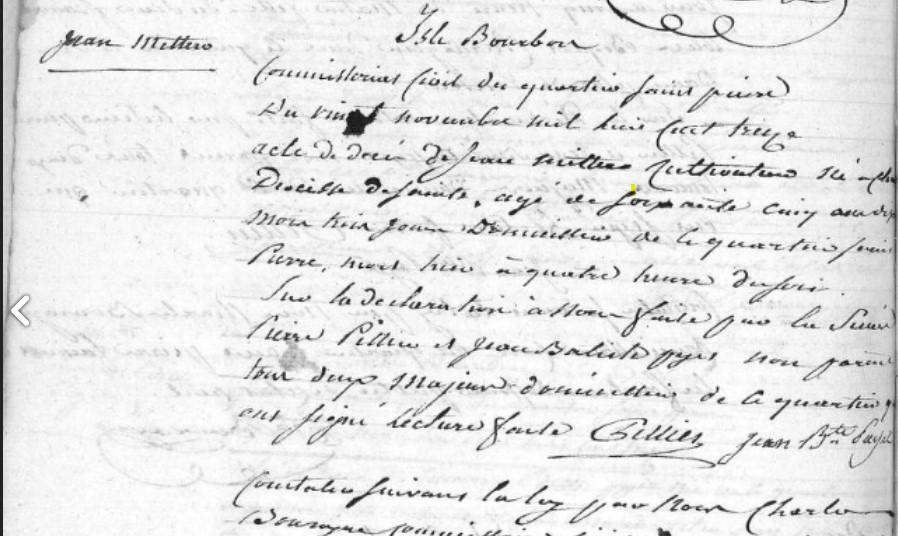 Isle Bourbon
Jean Mettero
Commissariat Civil du quartier Saint pierre
Du vingt novembre mil huit Cent treize
acte de decès de Jean Mettero Cultivateur né a
Diocèse de Saintes, agé de soixante cinq ans dix
Mois trois jours Domicillié de Ce quartier Saint
Pierre, mort hier à quatre heure du soir.
Sur la declaration à Nous faite par les Sieurs
Pierre Pellier et Jean Batiste payet non parent
tous deux Majeurs domicilliés de Ce quartier
ont signé lecture faite Pellier Jean Bte Payet
Constaté suivant la loy par Nous Charles